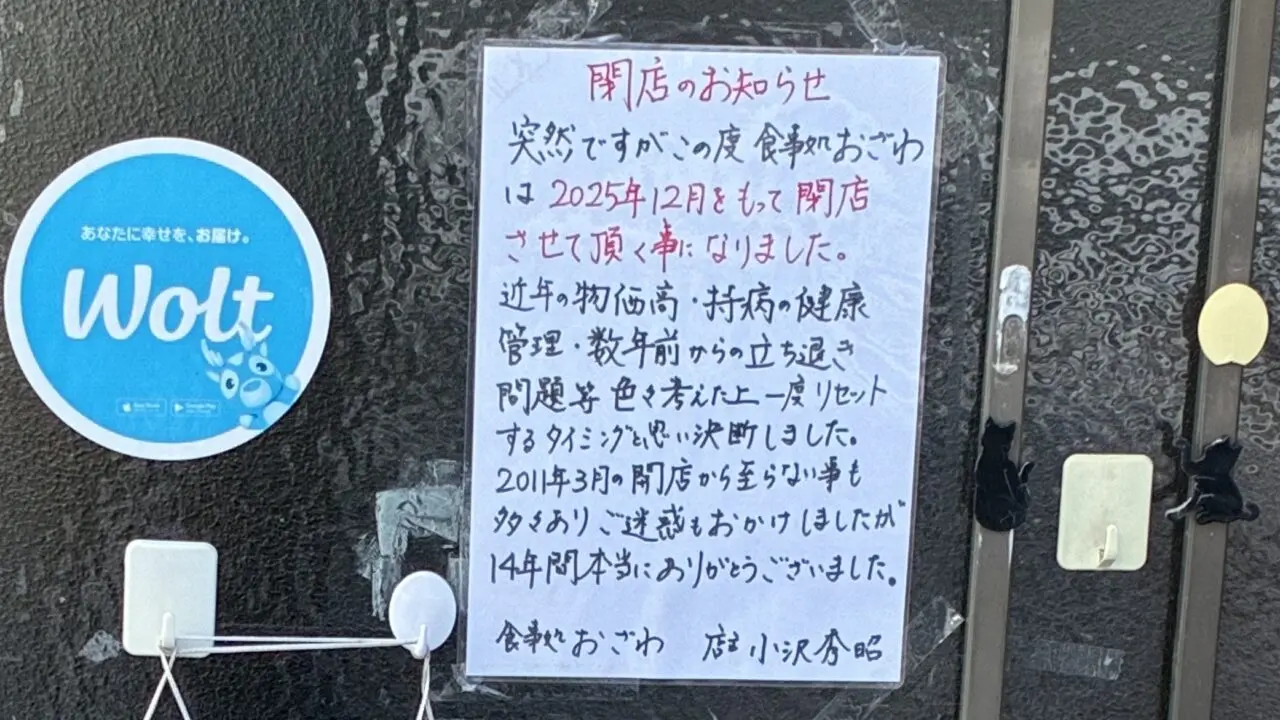 あなたに幸せを、お届け。
Wolt
App Store
Google Play
閉店のお知らせ
突然ですがこの度 食事処おざわ
は 2025年12月をもって 閉店
させて頂く事になりました。
近年の物価高・持病の健康
管理・数年前からの立ち退き
問題等 色々考えた上 一度リセット
するタイミングと思い決断しました。
2011年3月の開店から至らない事も
多々あり ご迷惑もおかけしましたが
14年間本当にありがとうございました。
食事処おざわ 店主 小沢秀昭